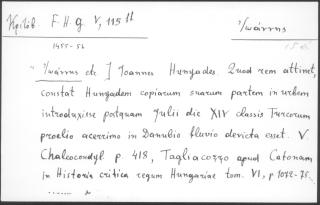 Κριτόβ. F.H.G. V, 115 ff Ἰωάννης
1455-56 15 αἰ.
"Ἰωάννης etc ] Ioannes Hunyades. Quod rem attinet,
constat Hunyadem copiarum suarum partem in urbem
introduxisse postquam Julii die XIV classis Turcorum
proelio acerrimo in Danubio fluvio devicta esset. V
Chalcocondyl p. 418, Tagliacozzo apud Catonam
in Historia critica regum Hungariae tom. VI, p 1072-75.
....... "